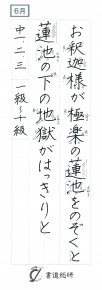 6月
お釈迦様が極楽の蓮池をのぞくと
蓮池の下の地獄がはっきりと
中一二三 一級~十級
書道総研